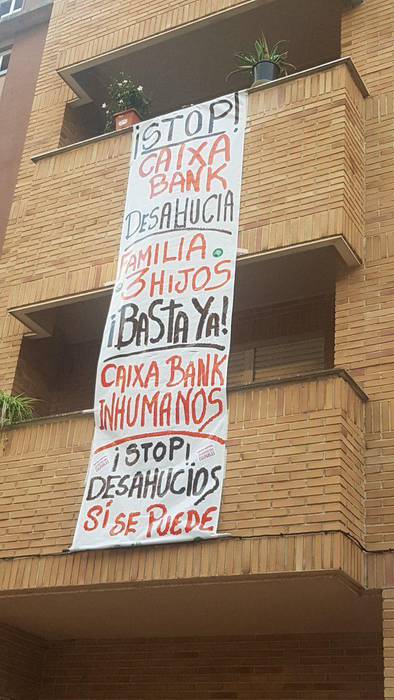 ¡STOP!
CAIXA
BANK
DESAHUCIA
FAMILIA
3 HIJOS
¡BASTA YA!
CAIXA BANK
INHUMANOS
¡STOP¡
DESAHUCIOS
SÍ SE PUEDE